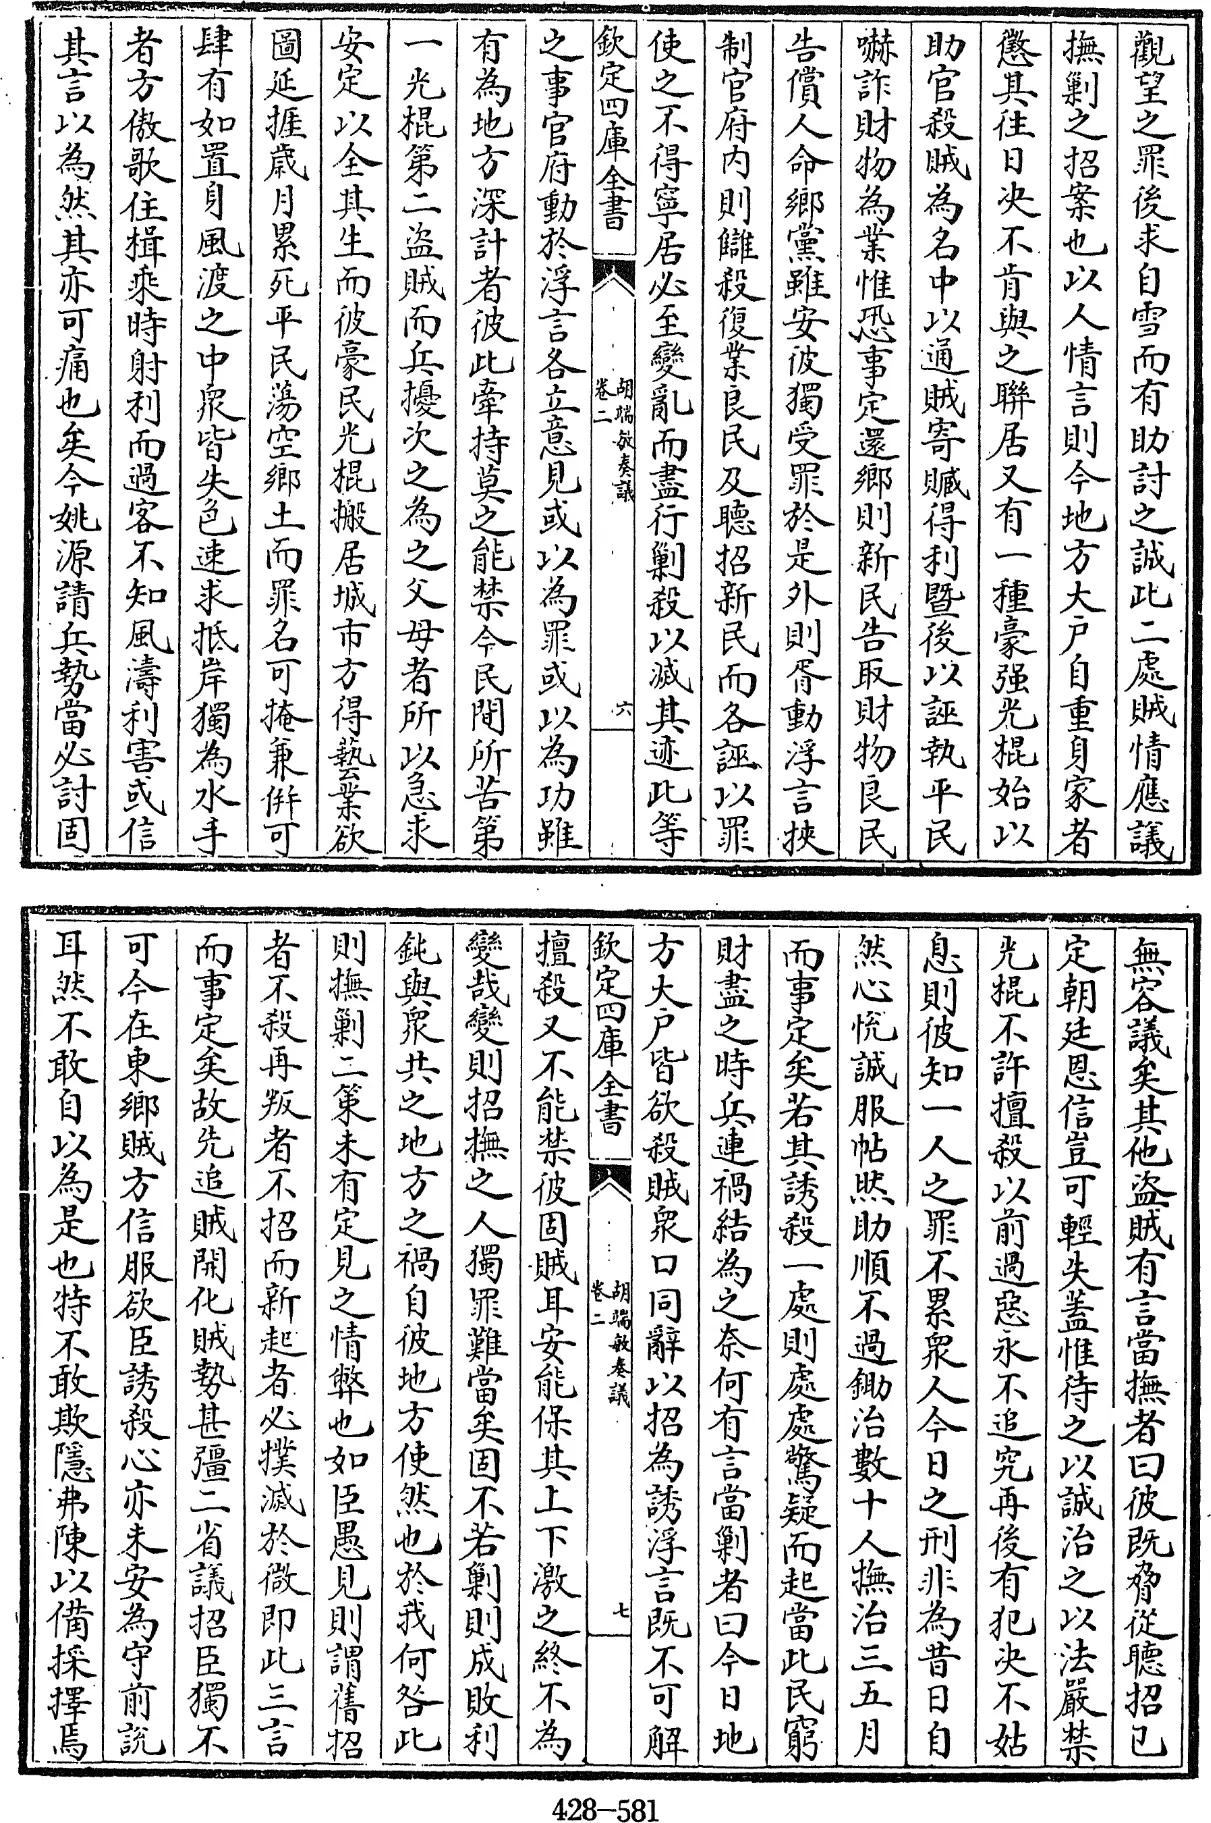 觀望之罪後求自雪而有助討之誠此二處賊情應議
撫剿之招案也以人情言則今地方大戸自重身家者
懲其徃日决不肯與之聯居又有一種豪强光棍始以
助官殺賊為名中以通賊寄贓得利暨後以誣執平民
嚇詐財物為業惟恐事定還鄉則新民告取財物良民
告償人命鄉黨雖安彼獨受罪於是外則胥動浮言挾
制官府内則讎殺復業良民及聽招新民而各誣以罪
使之不得寧居必至變亂而盡行剿殺以滅其迹此等
欽定四庫全書
胡端敏奏議
卷二
六
之事官府動於浮言各立意見或以為罪或以為功雖
有為地方深計者彼此牽持莫之能禁今民間所苦第
一光棍第二盗賊而兵擾次之為之父母者所以急求
安定以全其生而彼豪民光棍搬居城市方得藝業欲
圖延捱歳月累死平民蕩空鄉土而罪名可掩兼併可
肆有如置身風渡之中衆皆失色速求抵岸獨為水手
者方傲歌住楫乘時射利而過客不知風濤利害或信
其言以為然其亦可痛也矣今姚源請兵勢當必討固
無容議矣其他盗賊有言當撫者曰彼既脅從聽招已
定朝廷恩信豈可輕失盖惟待之以誠治之以法嚴禁
光棍不許擅殺以前過惡永不追究再後有犯决不姑
息則彼知一人之罪不累衆人今日之刑非為昔日自
然心恱誠服帖然助順不過鋤治數十人撫治三五月
而事定矣若其誘殺一處則處處驚疑而起當此民窮
財盡之時兵連禍結為之奈何有言當剿者曰今日地
方大戸皆欲殺賊衆口同辭以招為誘浮言既不可解
欽定四庫全書
胡端敏奏議
卷二
七
擅殺又不能禁彼固賊耳安能保其上下激之終不為
變哉變則招撫之人獨罪難當矣固不若剿則成敗利
鈍與衆共之地方之禍自彼地方使然也於我何咎此
則撫剿二策未有定見之情弊也如臣愚見則謂舊招
者不殺再叛者不招而新起者必撲滅於微即此三言
而事定矣故先追賊開化賊勢甚彊二省議招臣獨不
可今在東鄉賊方信服欲臣誘殺心亦未安為守前説
耳然不敢自以為是也特不敢欺隱弗陳以備採擇焉
428-581